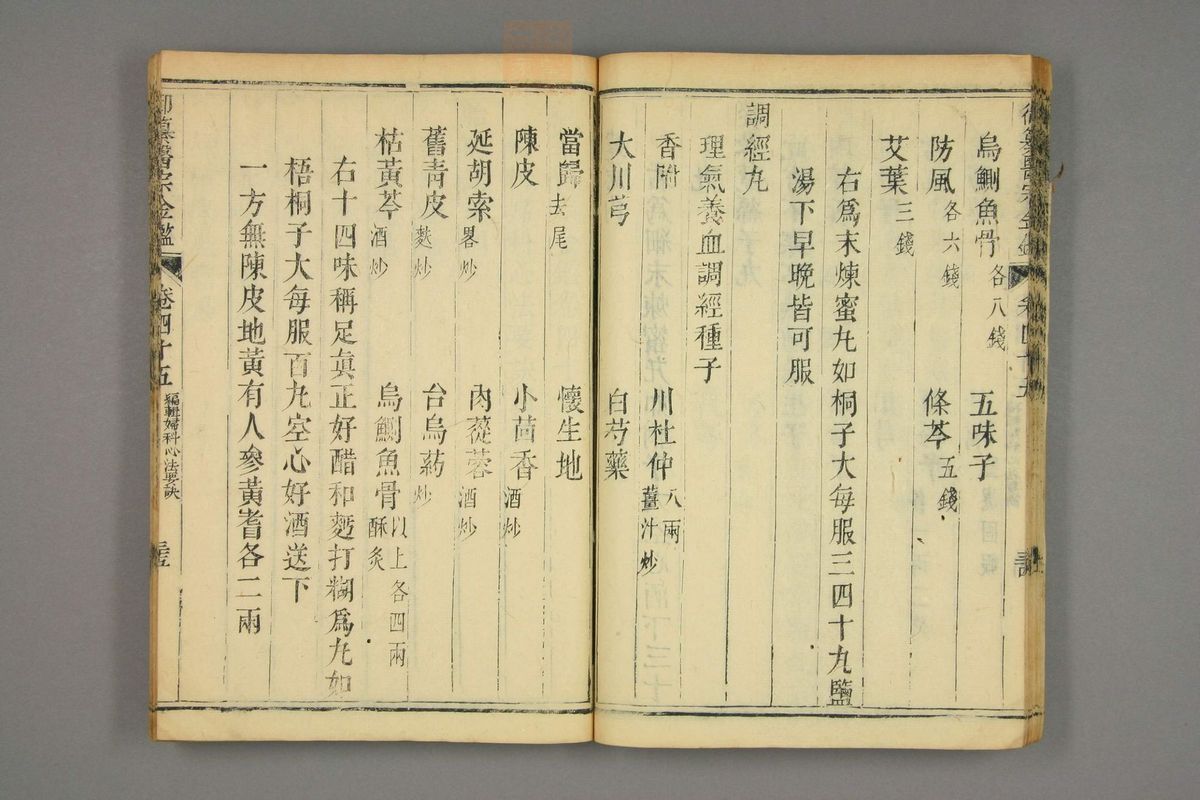 烏鰂魚骨各八錢　五味子
防風各六錢　條芩五錢
艾葉三錢
右爲末煉蜜丸如桐子大每服三四十丸鹽
湯下早晚皆可服
調經丸
理氣養血調經種子
香附　川杜仲八兩薑汁炒
大川芎　白芍藥
當歸去尾　懷生地
陳皮　小茴香酒炒
延胡索畧炒　肉蓯蓉酒炒
舊青皮麩炒　台烏葯炒
枯黃芩酒炒　烏鰂魚骨以上各四兩酥炙
右十四味稱足眞正好醋和麪打糊爲丸如
梧桐子大每服百丸空心好酒送下
一方無陳皮地黃有人參黃耆各二兩
御纂醫宗金鑑　卷四十五　編輯婦科心法要訣